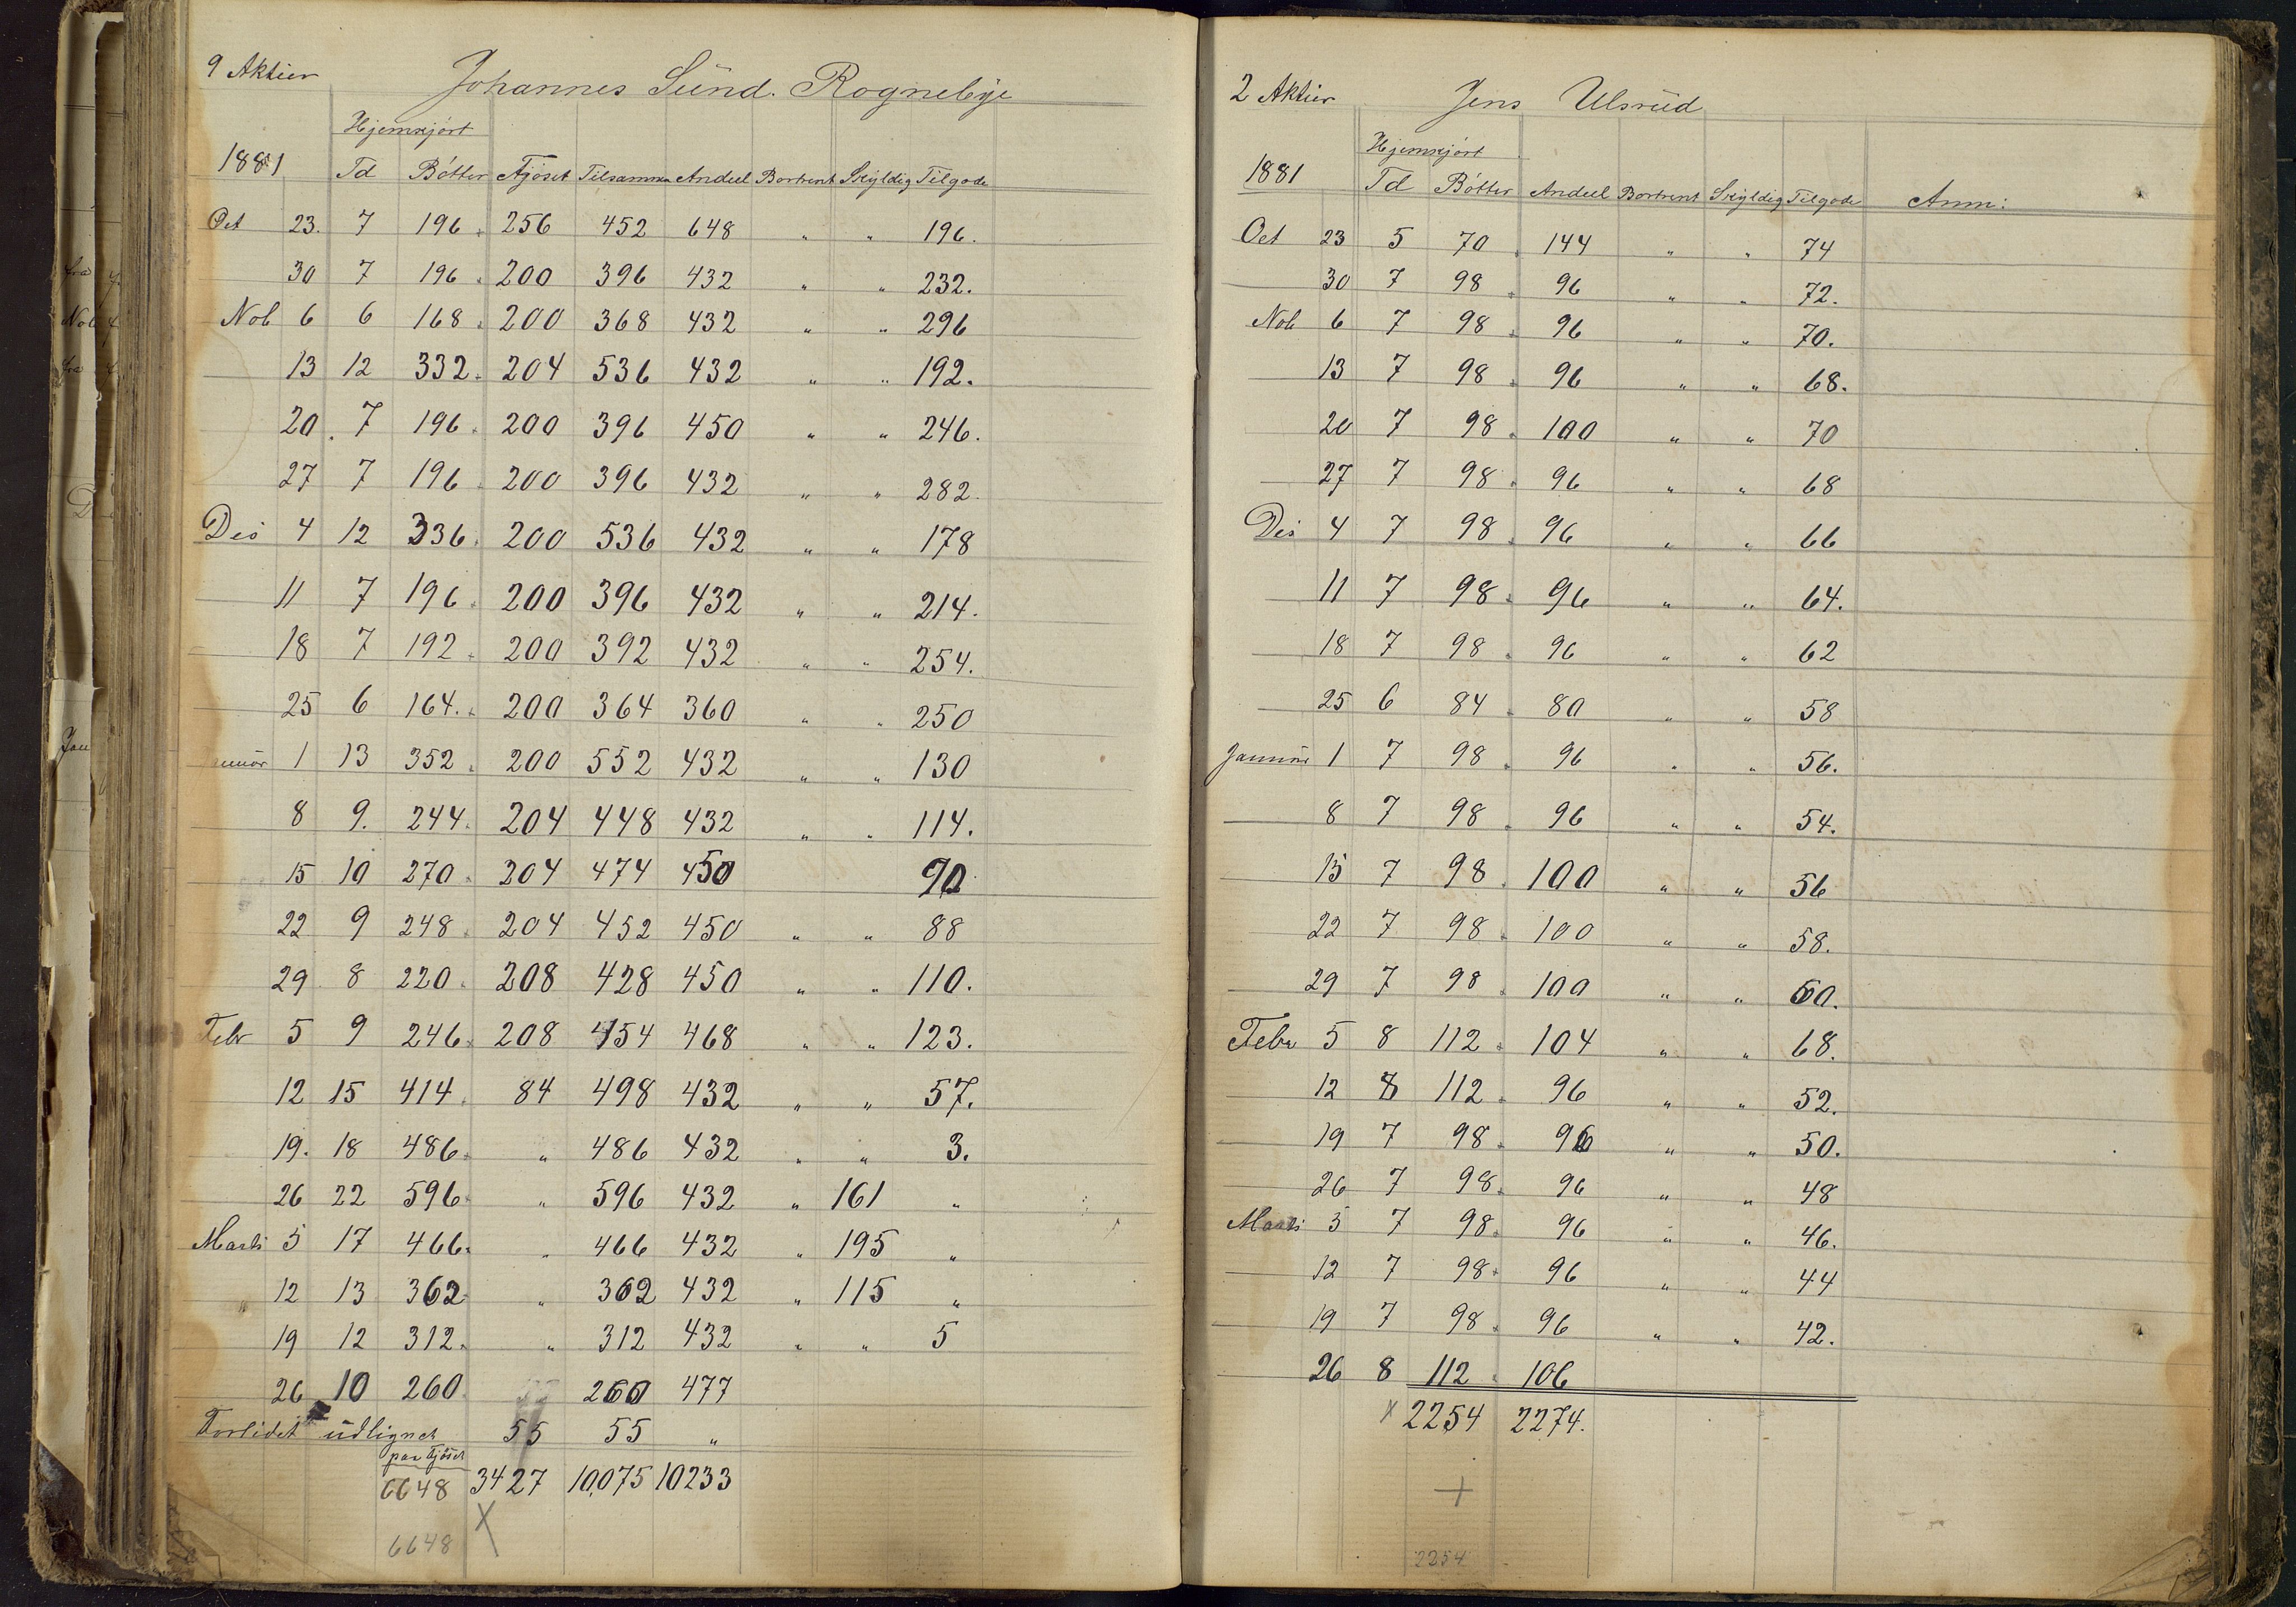 9 Aktier Johannes Sünd. Rognebye
Hjemkjört
1881 Td Bötter Fjöset Tilsammen Andeel Bortrent Skyldig Tilgode
Oct 23. 7 196 256 452 648 " " 196.
30 7 196 200 396 432 " " 232.
Nob 6 6 168 200 368 432 " " 296
13 12 332 204 536 432 " " 192.
20. 7 196 200 396 450 " " 246.
27 7 196 200 396 432 " " 282.
Des 4 12 336 200 536 432 " " 178
11 7 196 200 396 432 " " 214.
18 7 192 200 392 432 " " 254.
25 6 164. 200 364 360 " " 250
nuar 1 13 352 200 552 432 " " 130
8 9. 244. 204 448 432 " " 114.
15 10 270 204 474 450 90
22 9 248 204 452 450 " " 88
29 8 220 208 428 450 " " 110.
Febr 5 9 246 208 454 468 " " 123.
12 15 414 84 498 432 " " 57.
19. 18 486 " 486 432 " " 3.
26 22 596 " 596 432 " 161 "
Marts 5 17 466 " 466 432 " 195 "
" 12 13 362 " 362 432 " 115 "
19 12 312 " 312 432 " " 5
26 10 260 260 477
Forlidet üdlignet 55 55 "
paa Fjöset
6648 3427 10,075 10233
X
6648
2 Aktier Jens Ulsrüd
Hjemkjört
1881 Td Bötter Andeel Bortrent Skyldig Tilgode Anm:
Oct 23 5 70 144 " " 74
30 7 98 96 " " 72.
Nob 6 7 98 96 " " 70.
13 7 98 96 " " 68.
20 7 98 100 " " 70
27 7 98 96 " " 68
Des 4 7 98 96 " " 66
11 7 98 96 " " 64.
18 7 98 96 " " 62
25 6 84 80 " " 58
Januar 1 7 98 96 " " 56.
8 7 98 96 " " 54.
15 7 98 100 " " 56
22 7 98 100 " " 58.
29 7 98 100 " " 60.
Febr 5 8 112 104 " " 68.
12 8 112 96 " " 52.
19 7 98 96 " " 50.
26 7 98 96 " " 48
Marts 5 7 98 96 " " 46.
12 7 98 96 " " 44
19 7 98 96 " " 42.
26 8 112 106
X 2254 2274.
+
2254
Nob
Jan